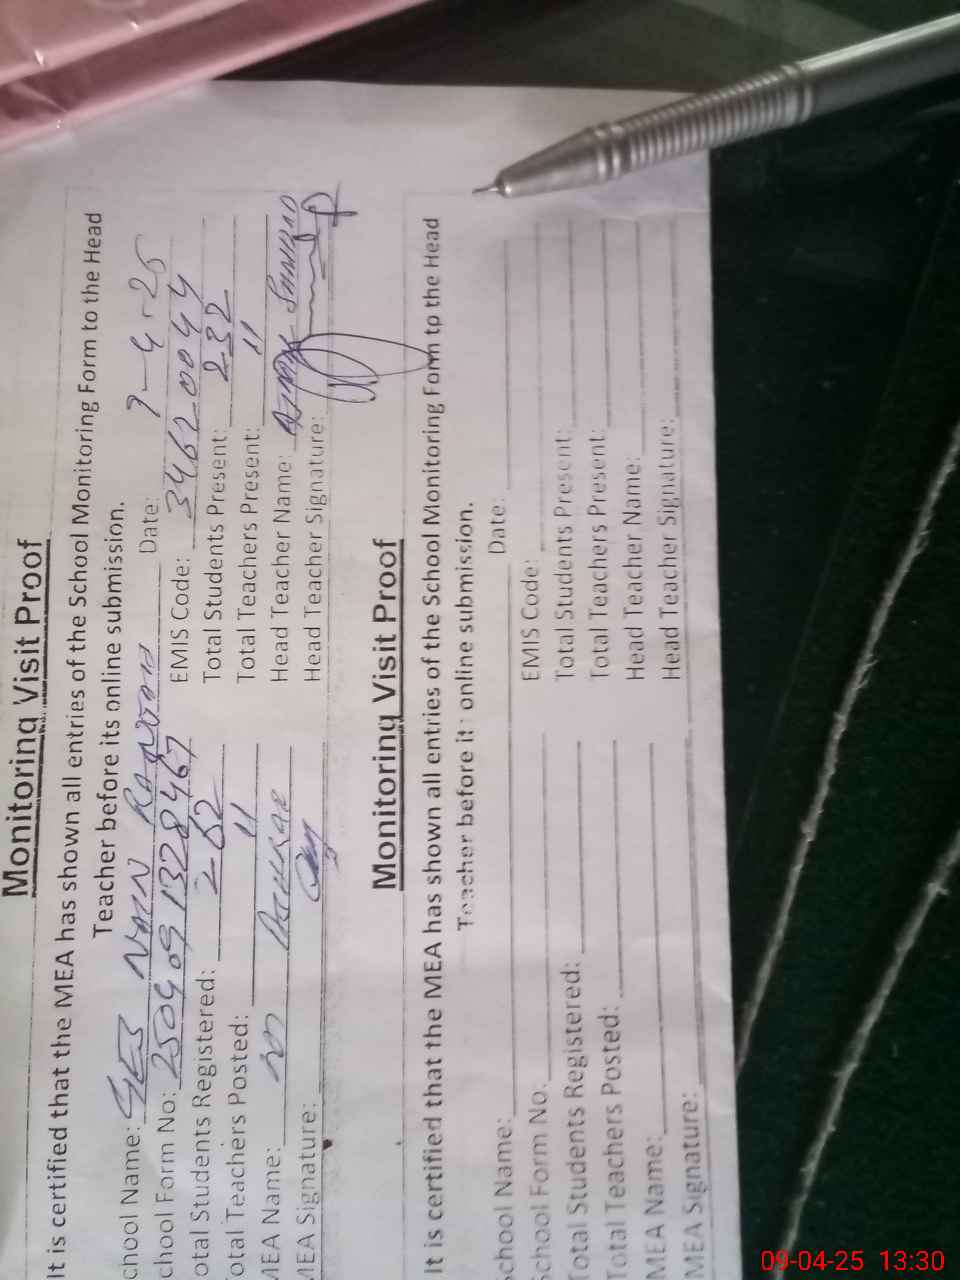 Monitoring Visit Proof
It is certified that the MEA has shown all entries of the School Monitoring Form to the Head
Teacher before its online submission.
chool Name: GES Date: 9-4-25
chool Form No: 2504091328467 EMIS Code: 34620044
otal Students Registered: 262 Total Students Present: 232
otal Teachers Posted: 11 Total Teachers Present: 11
MEA Name: Head Teacher Name:
MEA Signature: Head Teacher Signature:
Monitoring Visit Proof
It is certified that the MEA has shown all entries of the School Monitoring Form to the Head
Teacher before it online submission.
School Name: Date:
School Form No: EMIS Code:
Total Students Registered: Total Students Present:
Total Teachers Posted: Total Teachers Present:
MEA Name: Head Teacher Name:
MEA Signature: Head Teacher Signature:
09-04-25 13:30